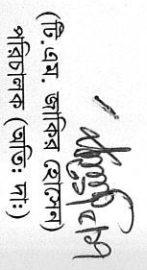 (ডি.এম. জাকির হোসেন)
পরিচালক (অতি: দা:)